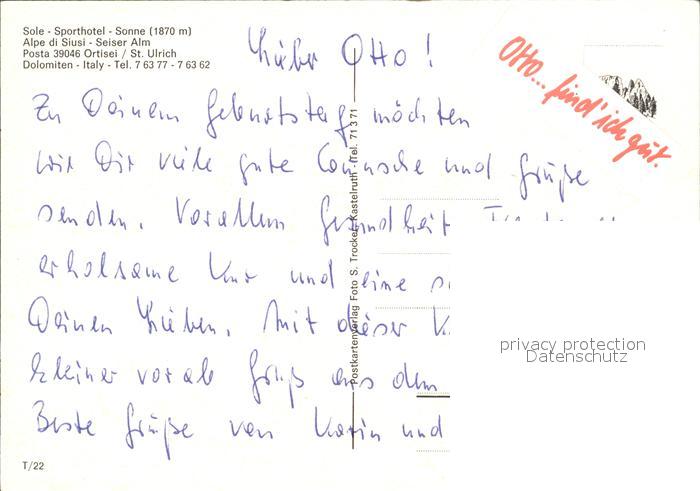 Sole - Sporthotel - Sonne (1870 m)
Alpe di Siusi - Seiser Alm
Posta 39046 Ortisei / St. Ulrich
Dolomiten - Italy - Tel. 7 63 77 - 7 63 62
Lieber Otto!
OTTO... find' ich gut.
Zu Deinem Geburtstag möchten
wir Dir viele gute Wünsche und Grüße
senden. Vor allem Gesundheit
erholsame Kur und eine
Deinen Lieben. Mit dieser
kleiner vorab Gruß aus dem
Beste Grüße von Karin und
Postkartenverlag Foto S. Trocker, Kastelruth - Tel. 71371
privacy protection
Datenschutz
T/22